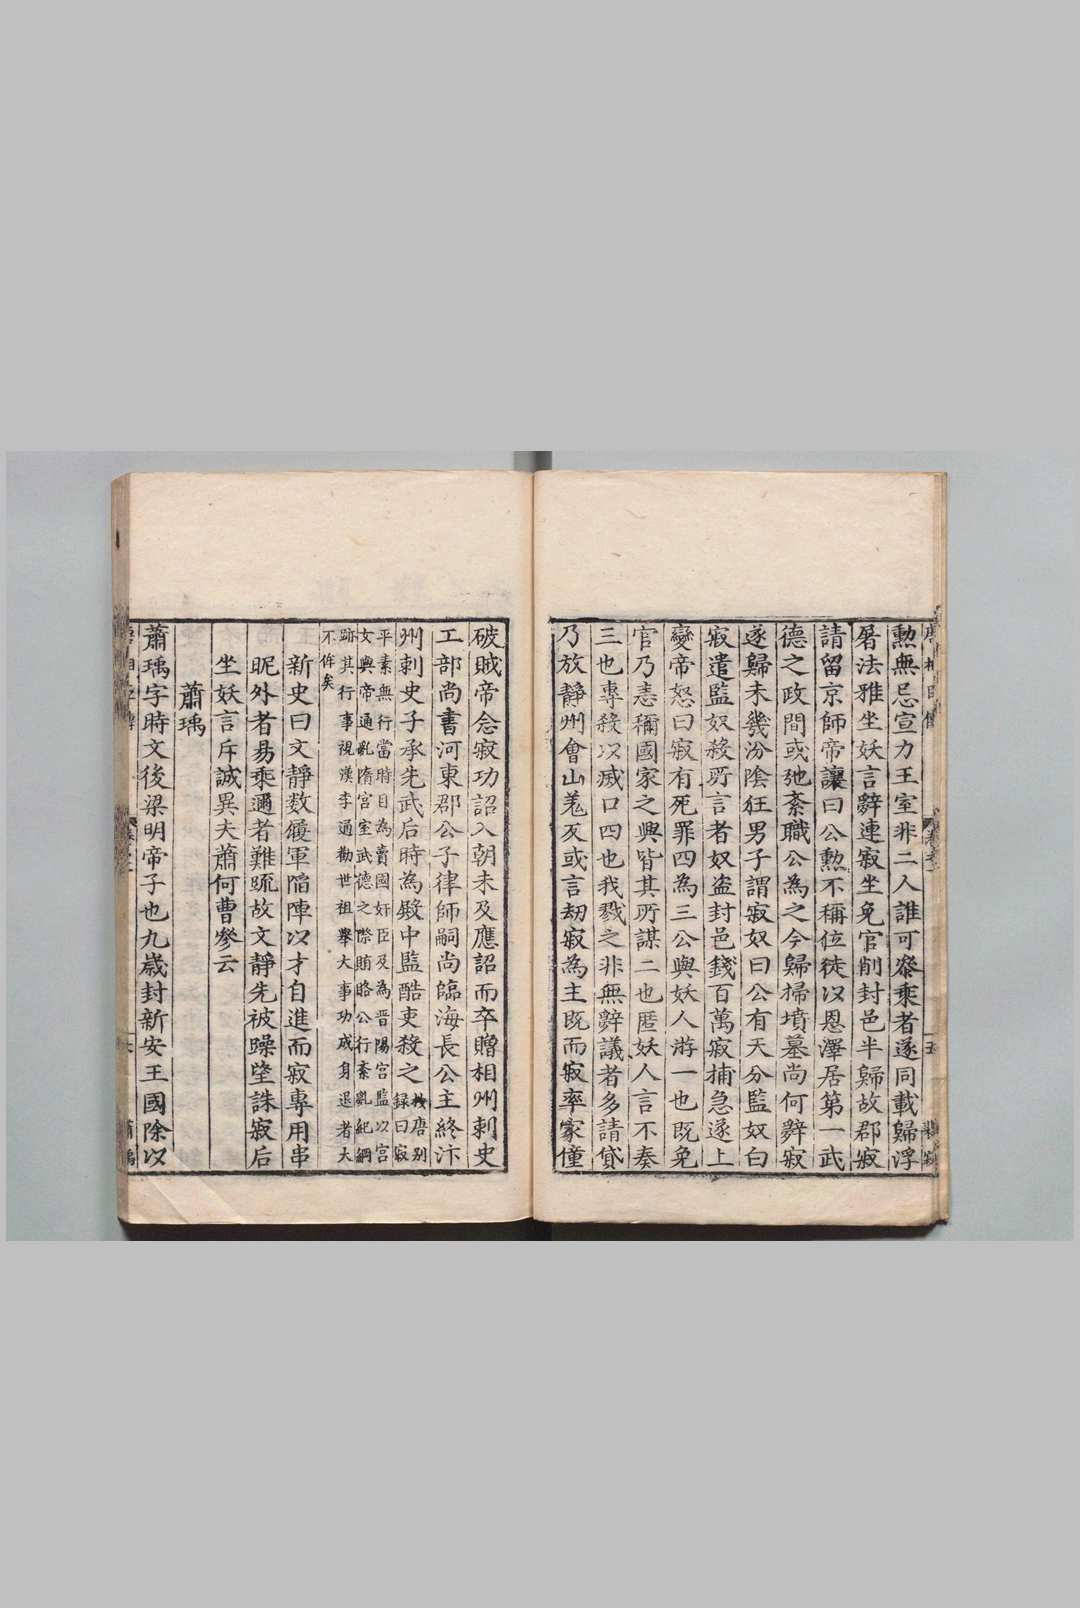 勲無忌宣力王室非二人誰可叅乗者遂同載歸浮
屠法雅坐妖言辭連寂坐免官削封邑半歸故郡寂
請留京師帝讓曰公勲不稱位徒以恩澤居第一武
德之政間或弛紊職公為之今歸掃墳墓尚何辤寂
遂歸未幾汾陰狂男子謂寂奴曰公有天分監奴白
寂遣監奴殺所言者奴盗封邑錢百萬寂捕急遂上
變帝怒曰寂有死罪四為三公與妖人游一也既免
官乃恚稱國家之興皆其所謀二也匿妖人言不奏
三也專殺以滅口四也我戮之非無辭議者多請貸
乃放静州會山羗反或言劫寂為主既而寂率家僮
破賊帝念寂功詔入朝未及應詔而卒贈相州刺史
工部尚書河東郡公子律師嗣尚臨海長公主終汴
州刺史子承先武后時為殿中監酷吏殺之
唐别
録曰寂
平素無行當時目為賣國奸臣及為晋陽宫監以宫
女與帝通亂隋宫室武德之際賄賂公行紊亂紀綱
跡其行事視漢李通勸世祖舉大事功成身退者大
不侔矣
新史曰文静数履軍陷陣以才自進而寂專用串
昵外者易乘邇者難䟽故文静先被躁望誅寂后
坐妖言斥誠異夫蕭何曹參云
蕭瑀
蕭瑀字時文後梁明帝子也九歳封新安王國除以